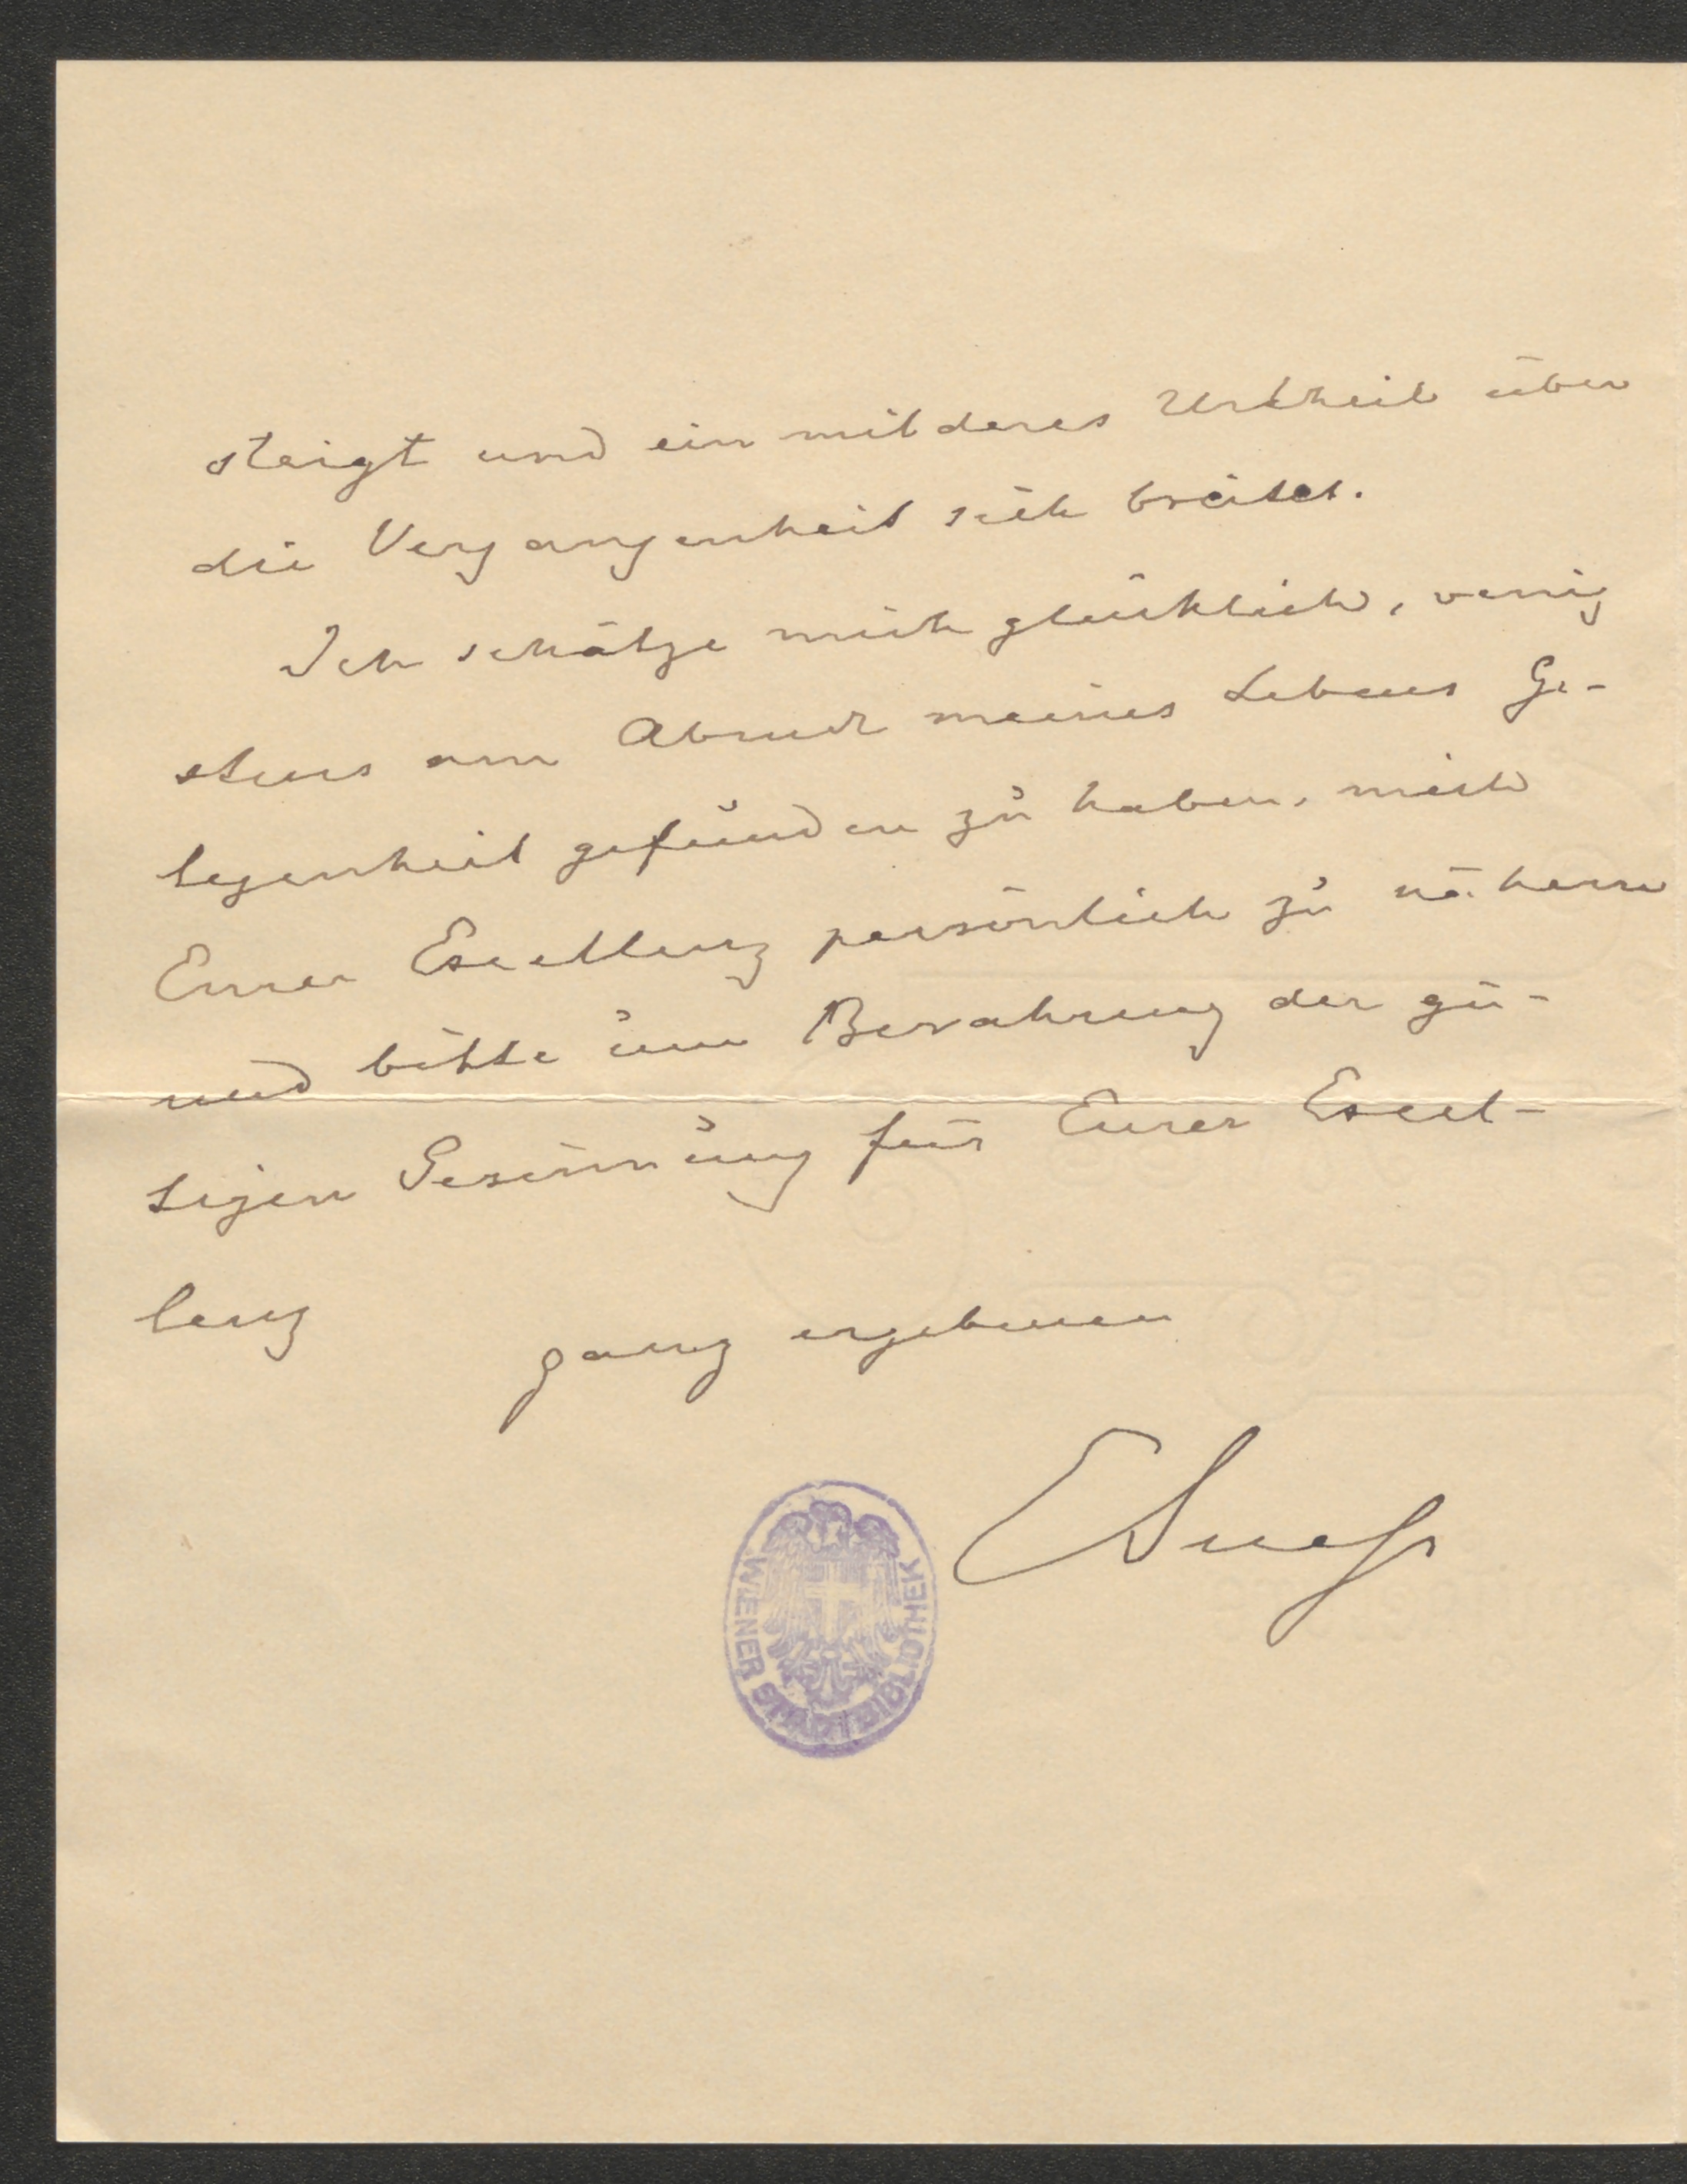 steigt und ein milderes Urtheil über
die Vergangenheit sich breitet.
Ich schätze mich glücklich, wenig
stens am Abend meines Lebens Ge-
legenheit gefunden zu haben, mich
Eurer Excellenz persönlich zu nähern
und bitte um Bewahrung der gü-
tigen Gesinnung für Eurer Excel-
lenz
ganz ergebenen
ESuess
WIENER STADTBIBLIOTHEK